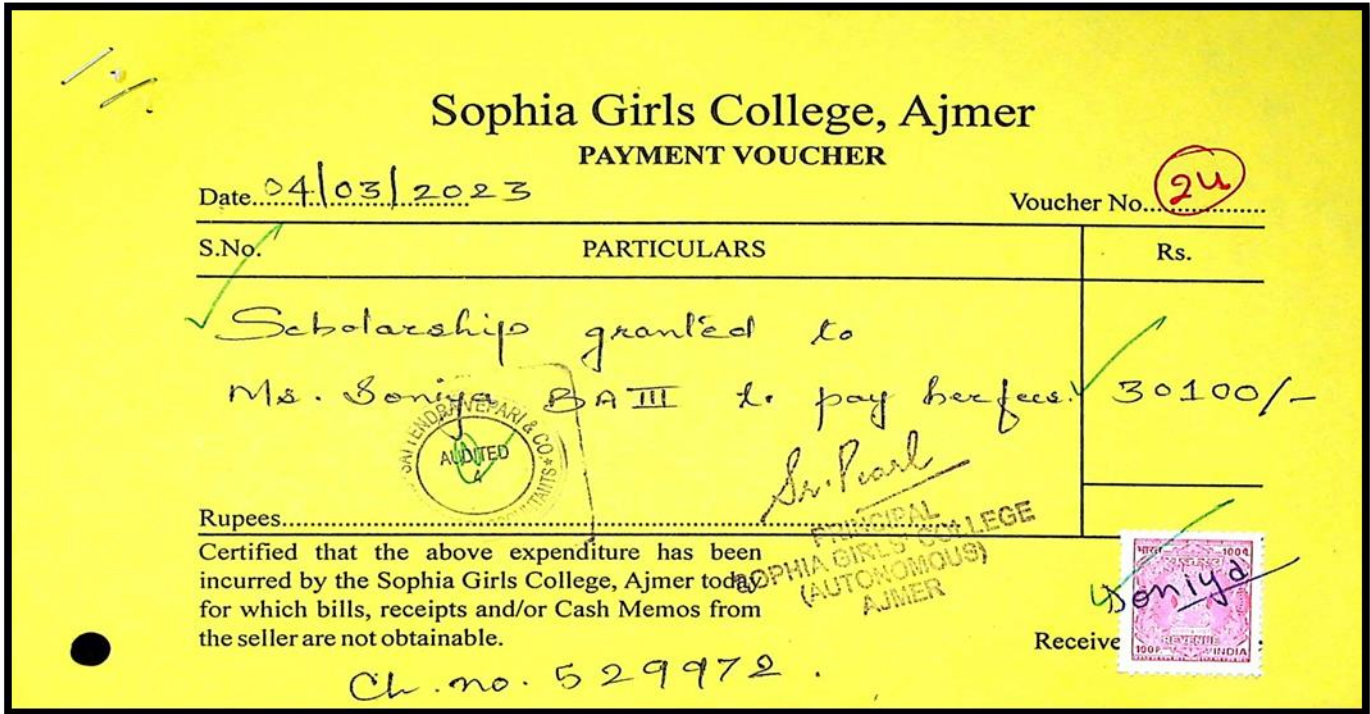 Sophia Girls College, Ajmer
PAYMENT VOUCHER
Date....04/03/2023 Voucher No....24
S.No. PARTICULARS Rs.
Scholarship granted to
Ms. Soniya BA III to pay her fees. 30100/-
SATTENDRA VEPARI & CO.
AUDITED
Sr. Pearl
Rupees....
PRINCIPAL
SOPHIA GIRLS' COLLEGE
(AUTONOMOUS)
AJMER
Certified that the above expenditure has been
incurred by the Sophia Girls College, Ajmer today
for which bills, receipts and/or Cash Memos from
the seller are not obtainable.
भारत 100
Soniya
REVENUE
100 INDIA
Receive
Ch. no. 529972.